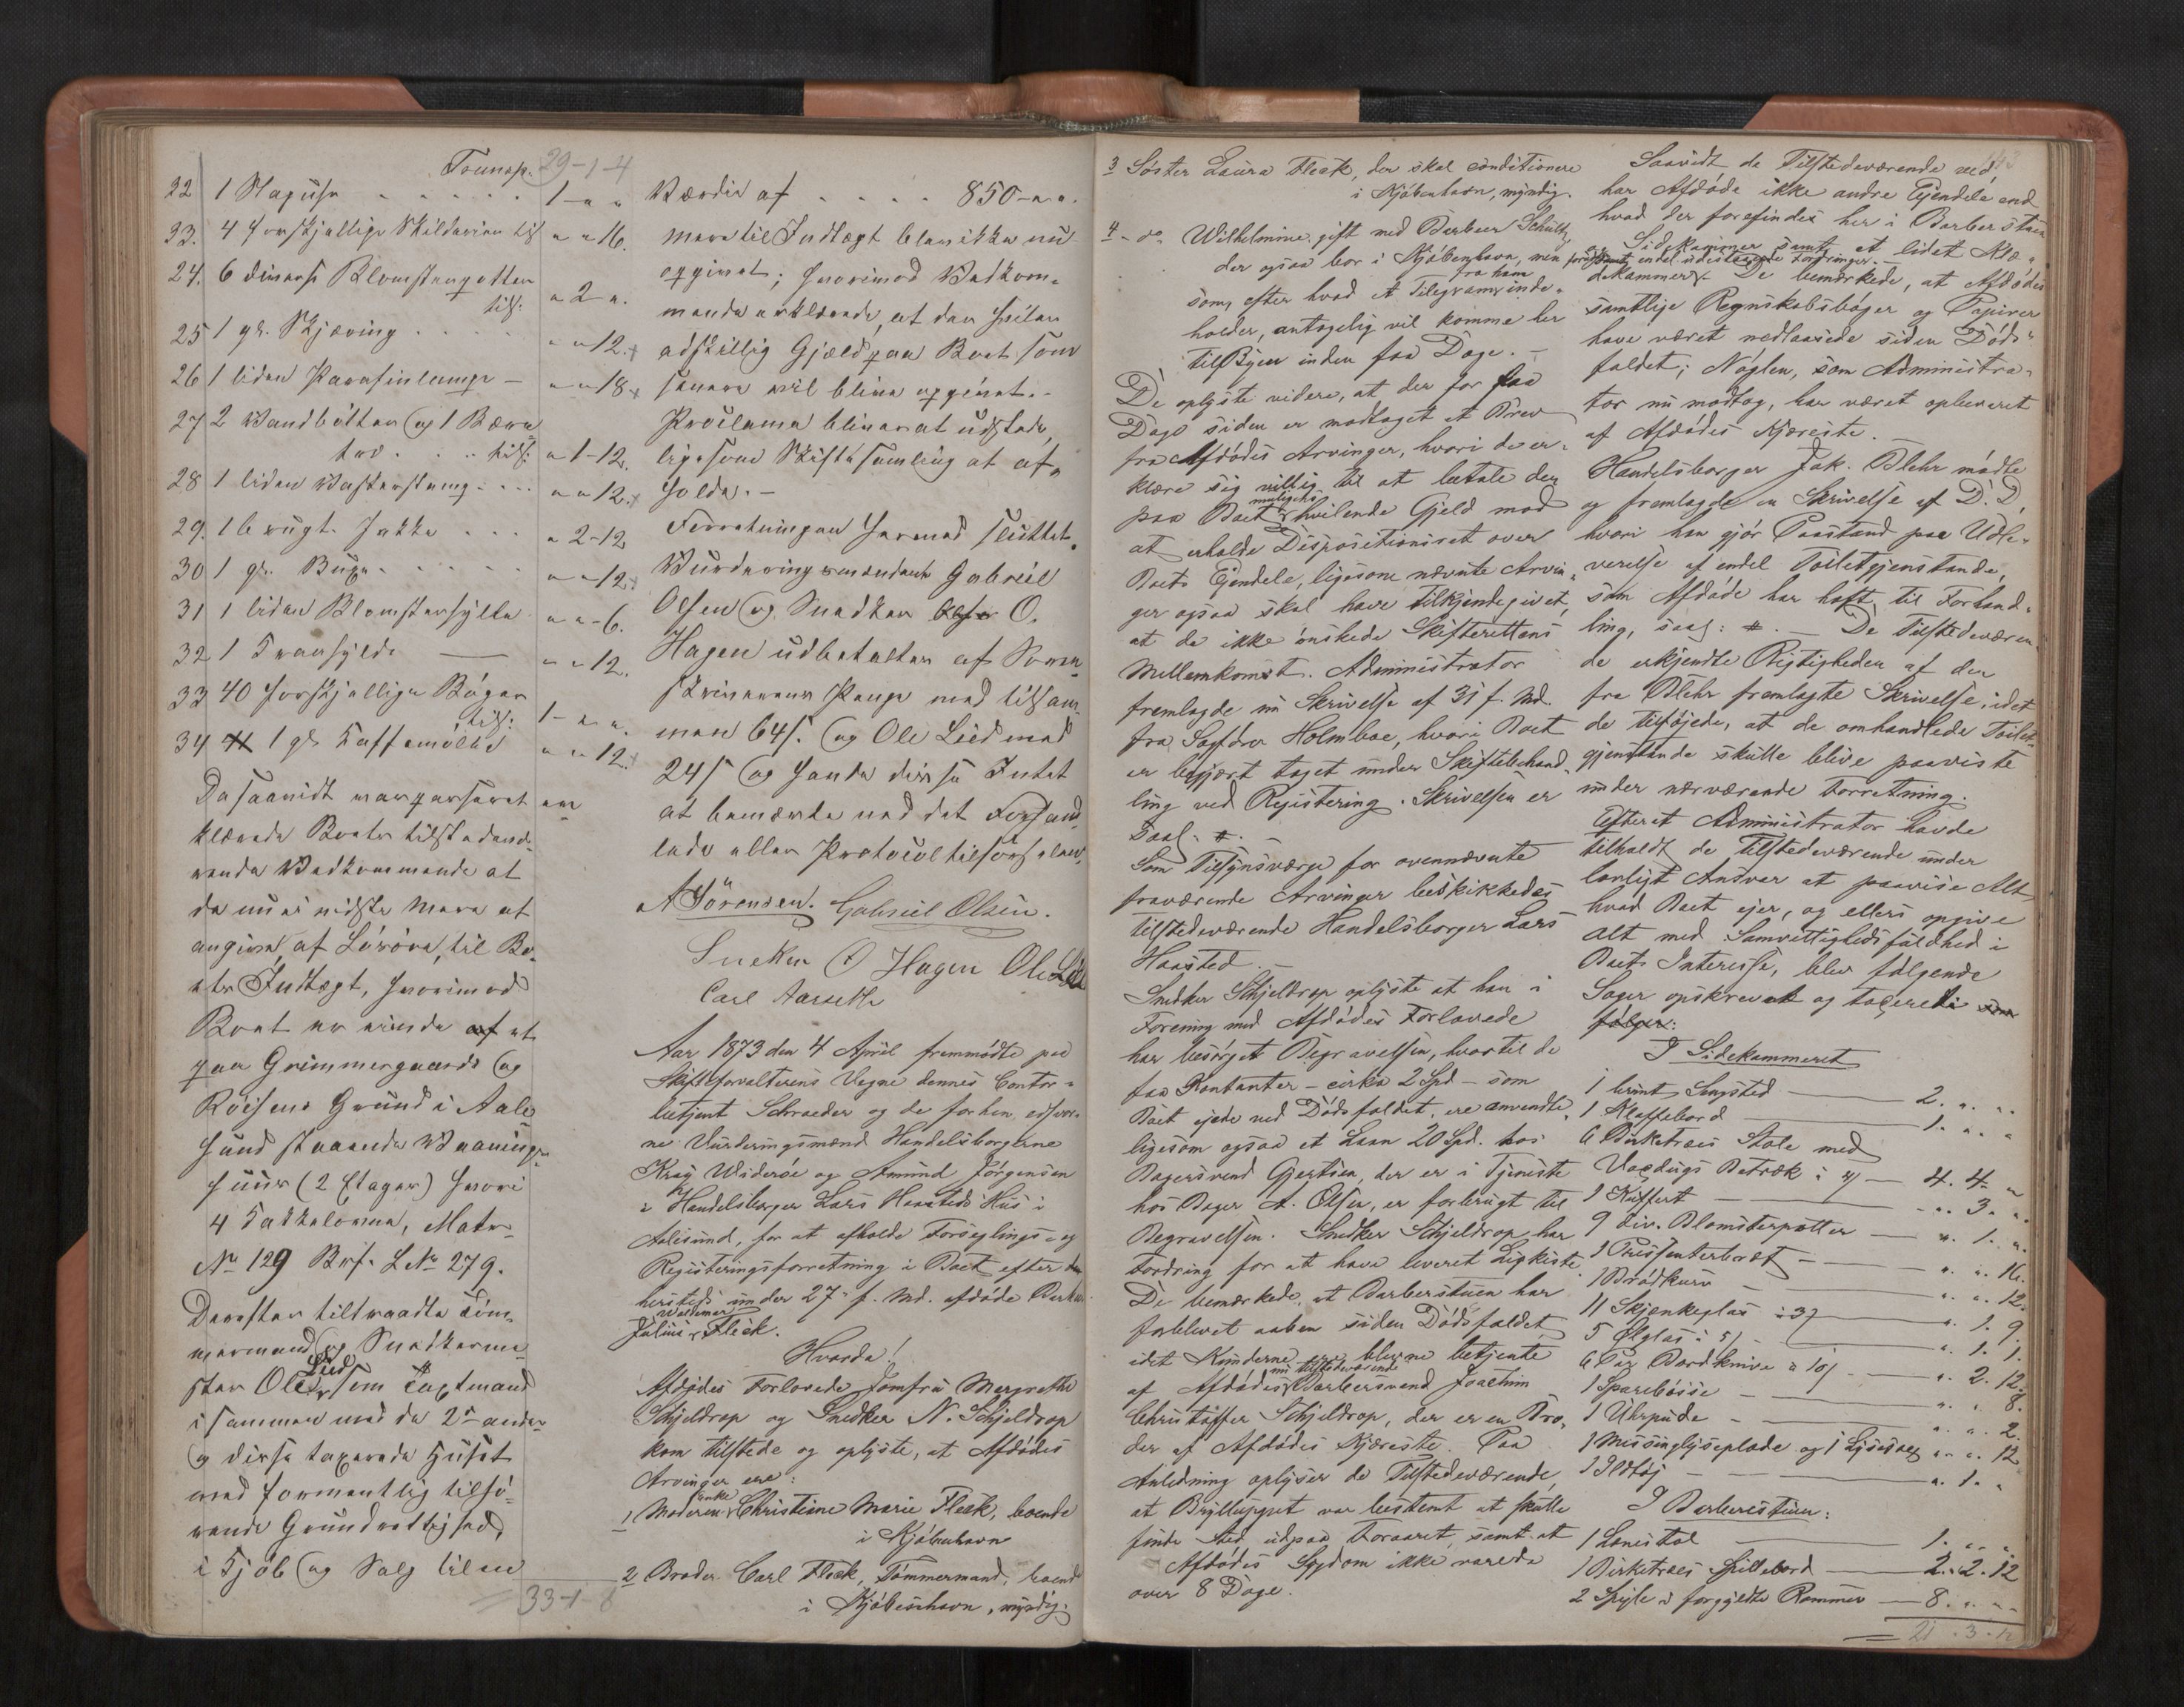 Transp. 29-1-4
22 1 Slaguhr . . . . . 1 - " "
23. 4 forskjellige Skilderier till " " 16.
24. 6 diverse Blomsterpotter
tils: " 2 - ".
25 1 gl. Skjæring . . . . " " 12.
26 1 liden Parafinlampe — " " 18.
27 2 Vandbøtter og 1 Bære
tro . . . tils: " 1-12.
28 1 liden Vaskestamp . . . " " 12.
29. 1 brugt Jakke . . . " 2-12
30 1 gl. Buxe . . . . . " " 12.
31 1 liden Blomsterhylde " " 6.
32 1 Tranhylde — " " 12.
33 40 forskjellige Bøger
tils: 1 - " ".
34 1 gl. Kaffemølle " " 12.
Da saavidt var passeret er-
klærede Boets tilstedevæ-
rende Vedkommende at
de nu ei vidste mere at
angive af Løsøre, til Bo-
ets Indtægt, hvorimod
Boet er eiende af et
paa Grimmergaards og
Røisens Grund i Aale
sund staaende Vaanings-
huus (2 Etager) hvori
4 Kakkelovne, Matr.
No 129 Brf. L No 279.
Derefter tiltraadte Tøm-
mermand og Snedkerme-
ster Ole Lied som Taxtmand
i sammen med de 2de andre
og disse taxerede Huset
med formentlig tilhø-
rende Grundrettighed,
i Kjøb og Salg til en
33-1-8
Værdie af . . . . 850 - " ".
mere til Indtægt blev ikke nu
opgivet; hvorimod Vedkom-
mende erklærede, at der hviler
adskillig Gjæld paa Boet som
senere vil blive opgivet. -
Proclama bliver at udstede,
ligesom Skiftesamling at af-
holde. -
Forretningen hermed sluttet.
Vurderingsmændene Gabriel
Olsen og Snedker O.
Hagen udbetaltes af Sorn-
skriverens Penge med tilsam-
men 64 s. og Ole Lied med
24 s og havde disse Intet
at bemærke ved det Forhand-
lede eller Protocoltilførselen.
A Sörensen. Gabriel Olsen.
Sneker O Hagen Ole Lied
Carl Aarseth
Aar 1873 den 4 April fremmødte paa
Skifteforvalterens Vegne dennes Contor-
betjent Schroeder og de forhen edsvor-
ne Vurderingsmænd Handelsborgerne
Krag Widerøe og Amund Jørgensen
i Handelsborger Lars Haasteds Hus i
Aalesund, for at afholde Forseglings- og
Registeringsforretning i Boet efter den
hersteds under 27de f. Md. afdøde Barber
Julius Waldemar Fleck.
Hvorda!
Afdødes Forlovede Jomfru Margrethe
Schjeldrop og Snedker N. Schjeldrop
kom tilstede og oplyste, at Afdødes
Arvinger ere:
1 Moderen Enke Christine Marie Fleck, boende
i Kjøbenhavn
2 Broder Carl Fleck, Tømmermand, boende
i Kjøbenhavn, myndig.
3 Søster Laura Fleck, der skal conditionere
i Kjøbenhavn, myndig.
4 - do Wilhelmine gift med Barbeer Schultz
der ogsaa bor i Kjøbenhavn, men
som, efter hvad et Telegram fra ham inde-
holder, antagelig vil komme her
til Byen inden faa Dage. -
De oplyste videre, at der for faa
Dage siden er modtaget et Brev
fra Afdødes Arvinger, hvori de er-
klære sig villig til at betale den
paa Boet muligens hvilende Gjeld mod
at erholde Dispositionsret over
Boets Ejendele, ligesom nævnte Arvin-
ger ogsaa skal have tilkjendegivet,
at de ikke ønskede Skifterettens
Mellemkomst. Administrator
fremlagde nu Skrivelse af 31 f. Md.
fra Sagfører Holmboe, hvori Boet
er begjært taget under Skiftebehand-
ling ved Registering. Skrivelsen er
saal. #. -
Som Tilsynsværge for ovennævnte
fraværende Arvinger beskikkedes
tilstedeværende Handelsborger Lars
Haasted. -
Snedker Schjeldrop oplyste at han i
Forening med Afdødes Forlovede
har besørget Begravelsen, hvortil de
faa Kontanter - cirka 2 Spd - som
Boet ejede ved Dødsfaldet, ere anvendte,
ligesom ogsaa et Laan 20 Spd. hos
Bagersvend Gjertsen, der er i Tjeneste
hos Bager A. Olsen, er forbrugt til
Begravelsen. Snedker Schjeldrop har
Fordring for at have leveret Ligkiste
De bemærkede, at Barberstuen har
forblevet aaben siden Dødsfaldet,
idet Kunderne ere blevne betjente
af Afdødes nu tilstedeværende Barbersvend Joachim
Christoffer Schjeldrop, der er en Bro-
der af Afdødes Kjæreste. Paa
Anledning oplyser de Tilstedeværende,
at Bryllupet var bestemt at skulle
finde Sted udpaa Foraaret, samt at
Afdødes Sygdom ikke varede
over 8 Dage.
Saavidt de Tilstedeværende ved,
har Afdøde ikke andre Ejendele end
hvad der forefindes her i Barberstuen
og Sidekammer samt et lidet Klæ-
dekammer, endel udestaaende Fordringer. De bemærkede, at Afdødes
samtlige Regnskabsbøger og Papirer
have været nedlaasede siden Døds-
faldet; Nøglen, som Administra-
tor nu modtog, har været opbevaret
af Afdødes Kjæreste. -
Handelsborger Jak. Blehr mødte
og fremlagde en Skrivelse af D. D,
hvori han gjør Paastand paa Udle-
verelse af endel Toiletgjenstande,
som Afdøde har haft til Forhand-
ling, saal: #. — De Tilstedeværen-
de erkjendte Rigtigheden af den
fra Blehr fremlagte Skrivelse, idet
de tilføjede, at de omhandlede Toilet-
gjenstande skulle blive paaviste
under nærværende Forretning.
Efterat Administrator havde
tilholdt de Tilstedeværende under
lovligt Ansvar at paavise Alt,
hvad Boet ejer, og ellers opgive
Alt med Samvittighedsfuldhed i
Boets Interesse, blev følgende
Sager opskrevet og taxerede som
følger:
I Sidekammeret
1 brunt Sengsted — 2. " "
1 Klaffebord — 1. " "
6 Birketræes Stole med
Voxdugs Betræk à — 4. 4. "
1 Kuffert — ". 3. ".
9 div. Blomsterpotter — ". 1. ".
1 Præsenterbræt — ". ". 16.
1 Brødkurv — ". ". 12.
11 Skjænkeglas à 3 — ". 1. 9.
5 Ølglas à 5 — ". 1. 1.
6 Par Bordknive à 10 — ". 2. 12.
1 Sparebøsse — ". ". 8.
1 Uhrpude — ". ". 2.
1 Messinglyseplade og 1 Lysesax ". ". 12
1 Ildtøj — ". 1. ".
I Barberstuen:
1 Lænestol — 1. " "
1 Birketræes Spillebord — 2. 2. 12
2 Spejle i forgyldte Rammer — 8. " "
21. 3. 12